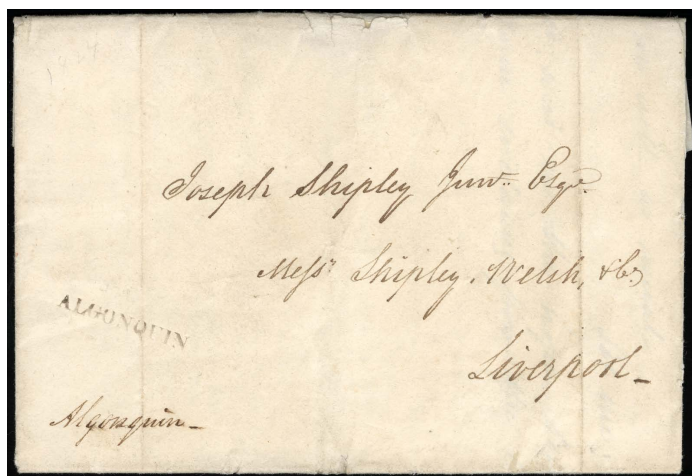 Joseph Shipley Junr. Esqr.
Messrs Shipley, Welsh, & Co
Liverpool_
ALGONQUIN
Algonquin_